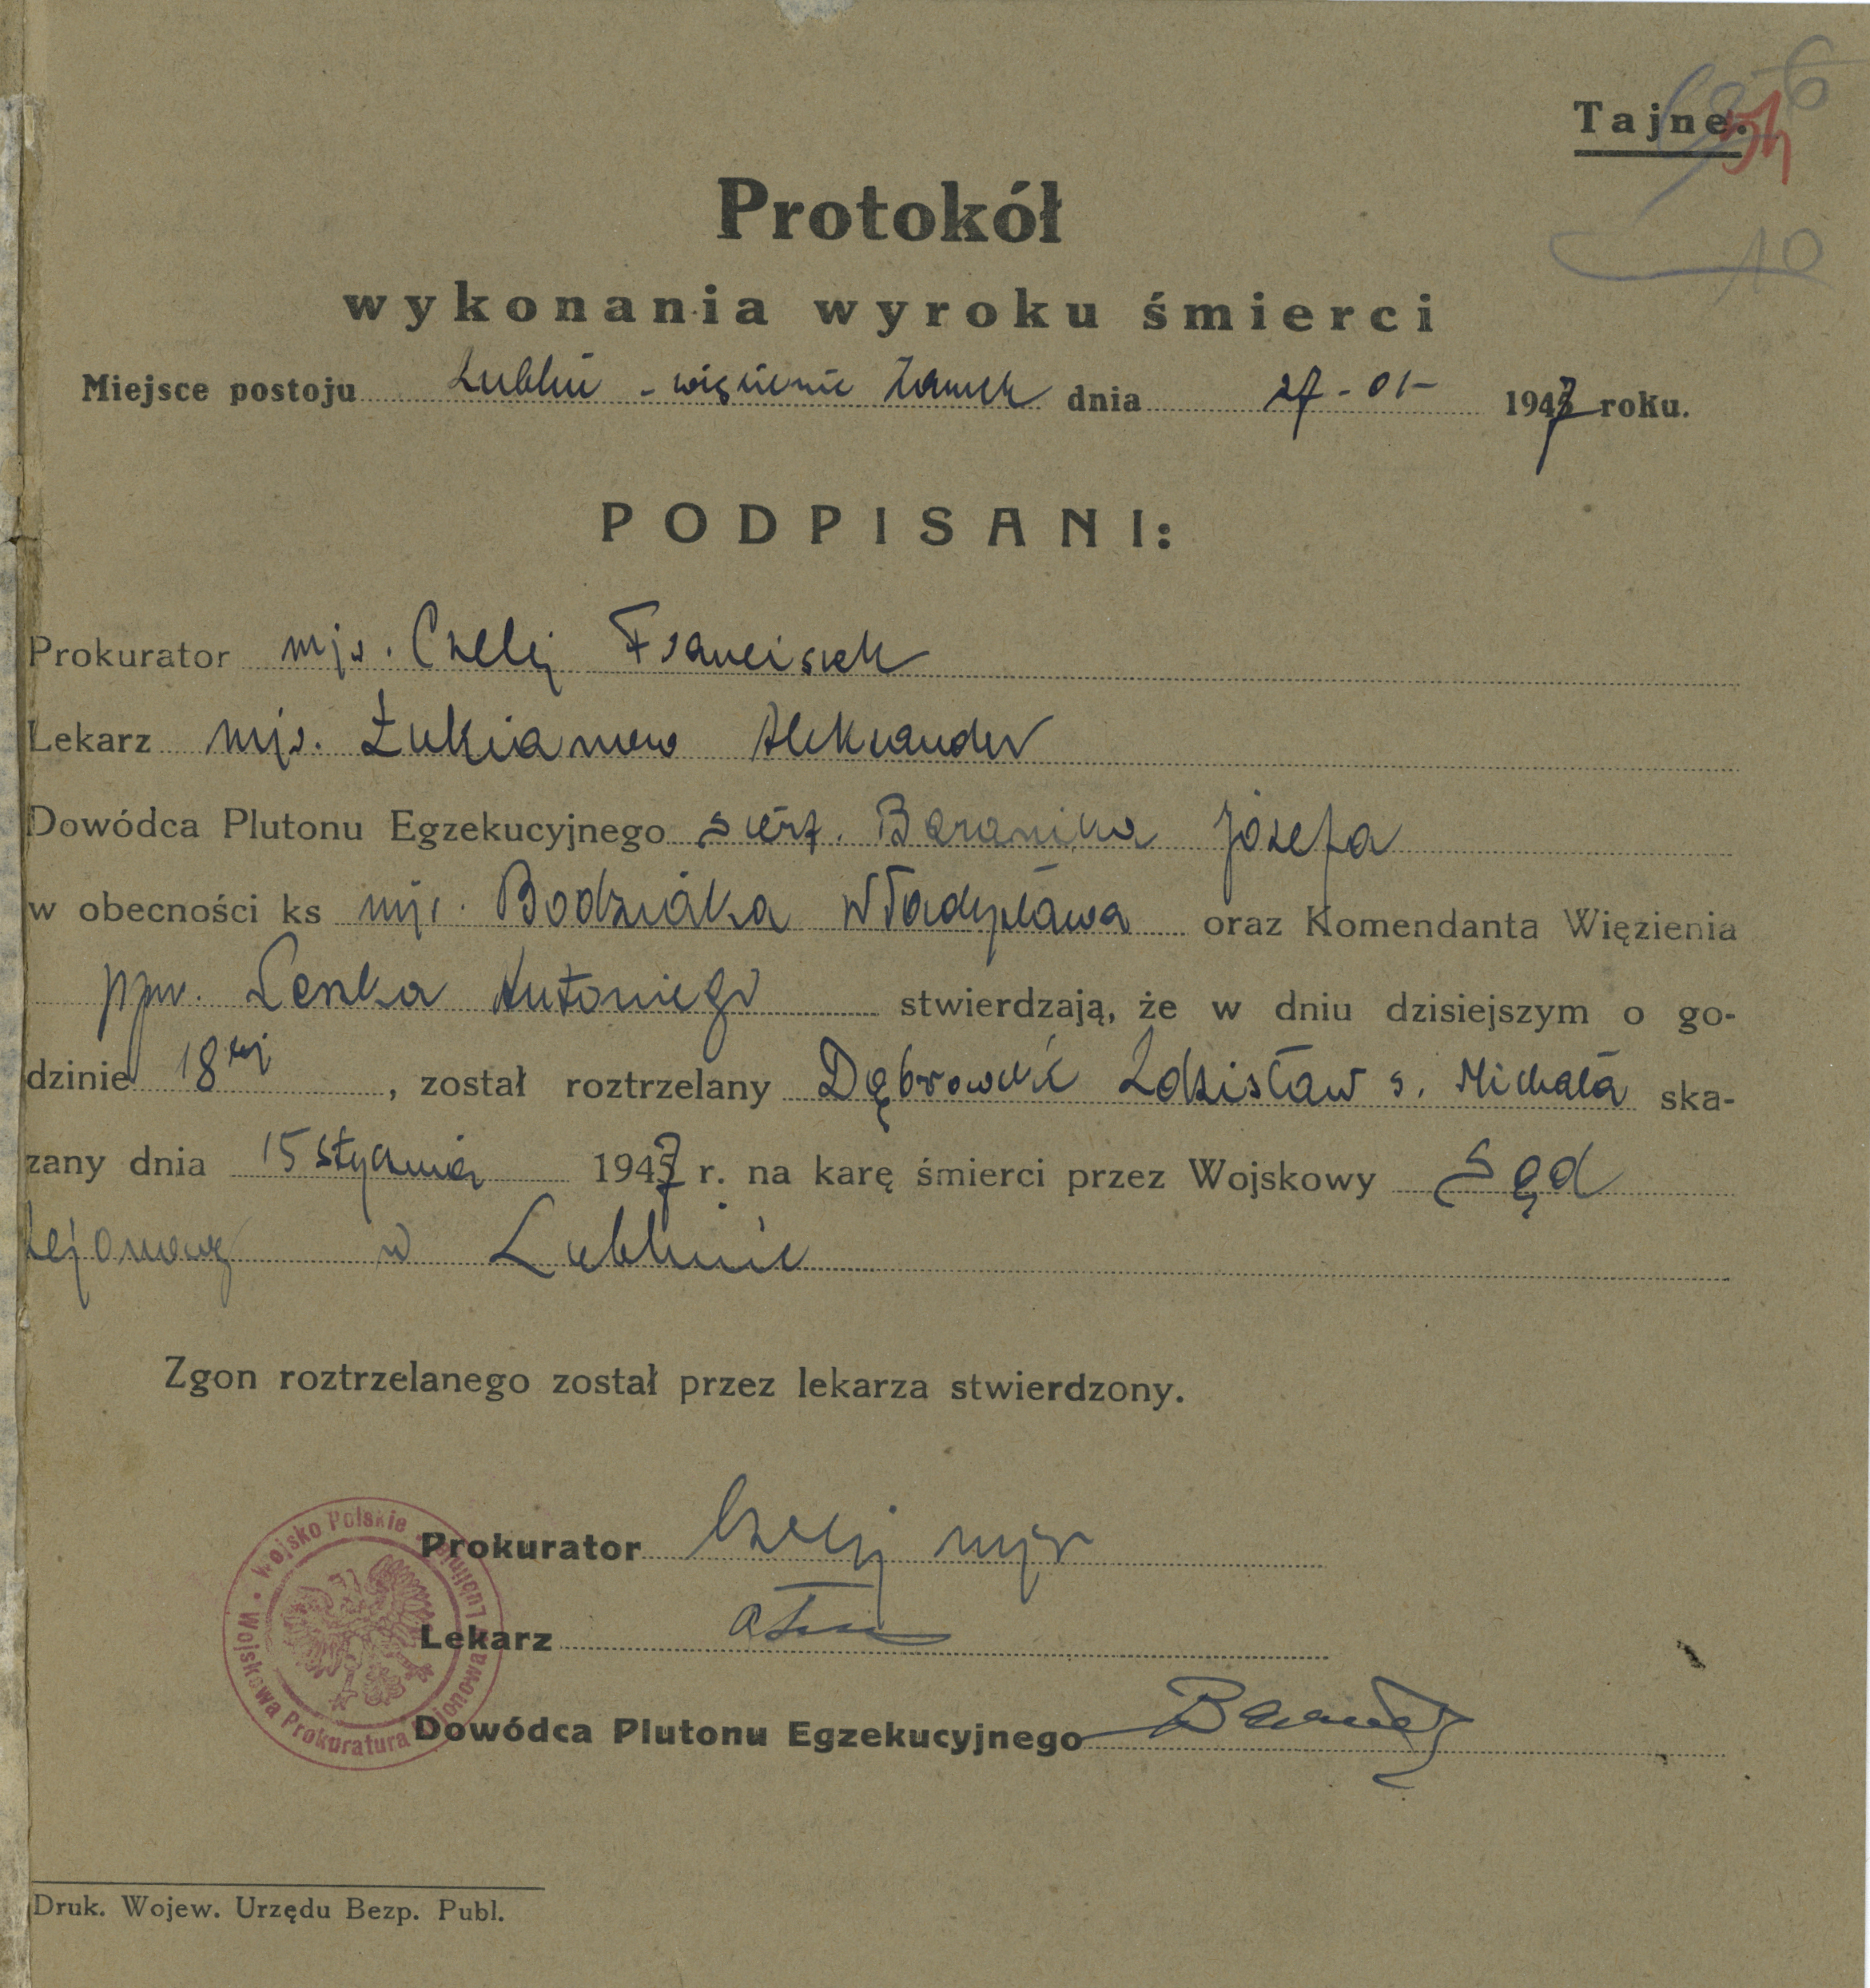 Tajne.
54
10
Protokół
wykonania wyroku śmierci
Miejsce postoju Lublin - więzienie Zamek dnia 27-01- 1947 roku.
PODPISANI:
Prokurator mjr. Czelej Franciszek
Lekarz mjr. Łukianow Aleksander
Dowódca Plutonu Egzekucyjnego sierż. Baranika Józefa
w obecności ks mjr. Bodziaka Władysława oraz Komendanta Więzienia
ppor. Leszka Antoniego stwierdzają, że w dniu dzisiejszym o go-
dzinie 18tej, został roztrzelany Dąbrowski Zdzisław s. Michała ska-
zany dnia 15 stycznia 1947 r. na karę śmierci przez Wojskowy Sąd
Rejonowy w Lublinie
Zgon roztrzelanego został przez lekarza stwierdzony.
Wojsko Polskie • Wojskowa Prokuratura Rejonowa Lublin
Prokurator Czelej mjr
Lekarz
Dowódca Plutonu Egzekucyjnego
Druk. Wojew. Urzędu Bezp. Publ.